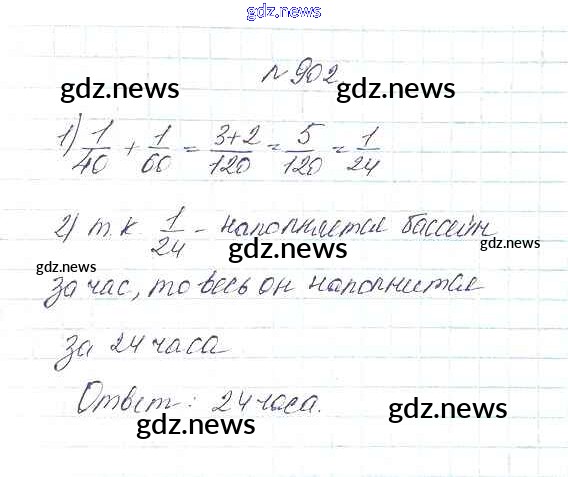 gdz.news
№902
gdz.news gdz.news
1) 1/40 + 1/60 = 3+2/120 = 5/120 = 1/24
2) т.к. 1/24 - наполняется бассейн
gdz.news gdz.news
gdz.news
за час, то весь он наполнится
за 24 часа
Ответ: 24 часа.
gdz.news gdz.news